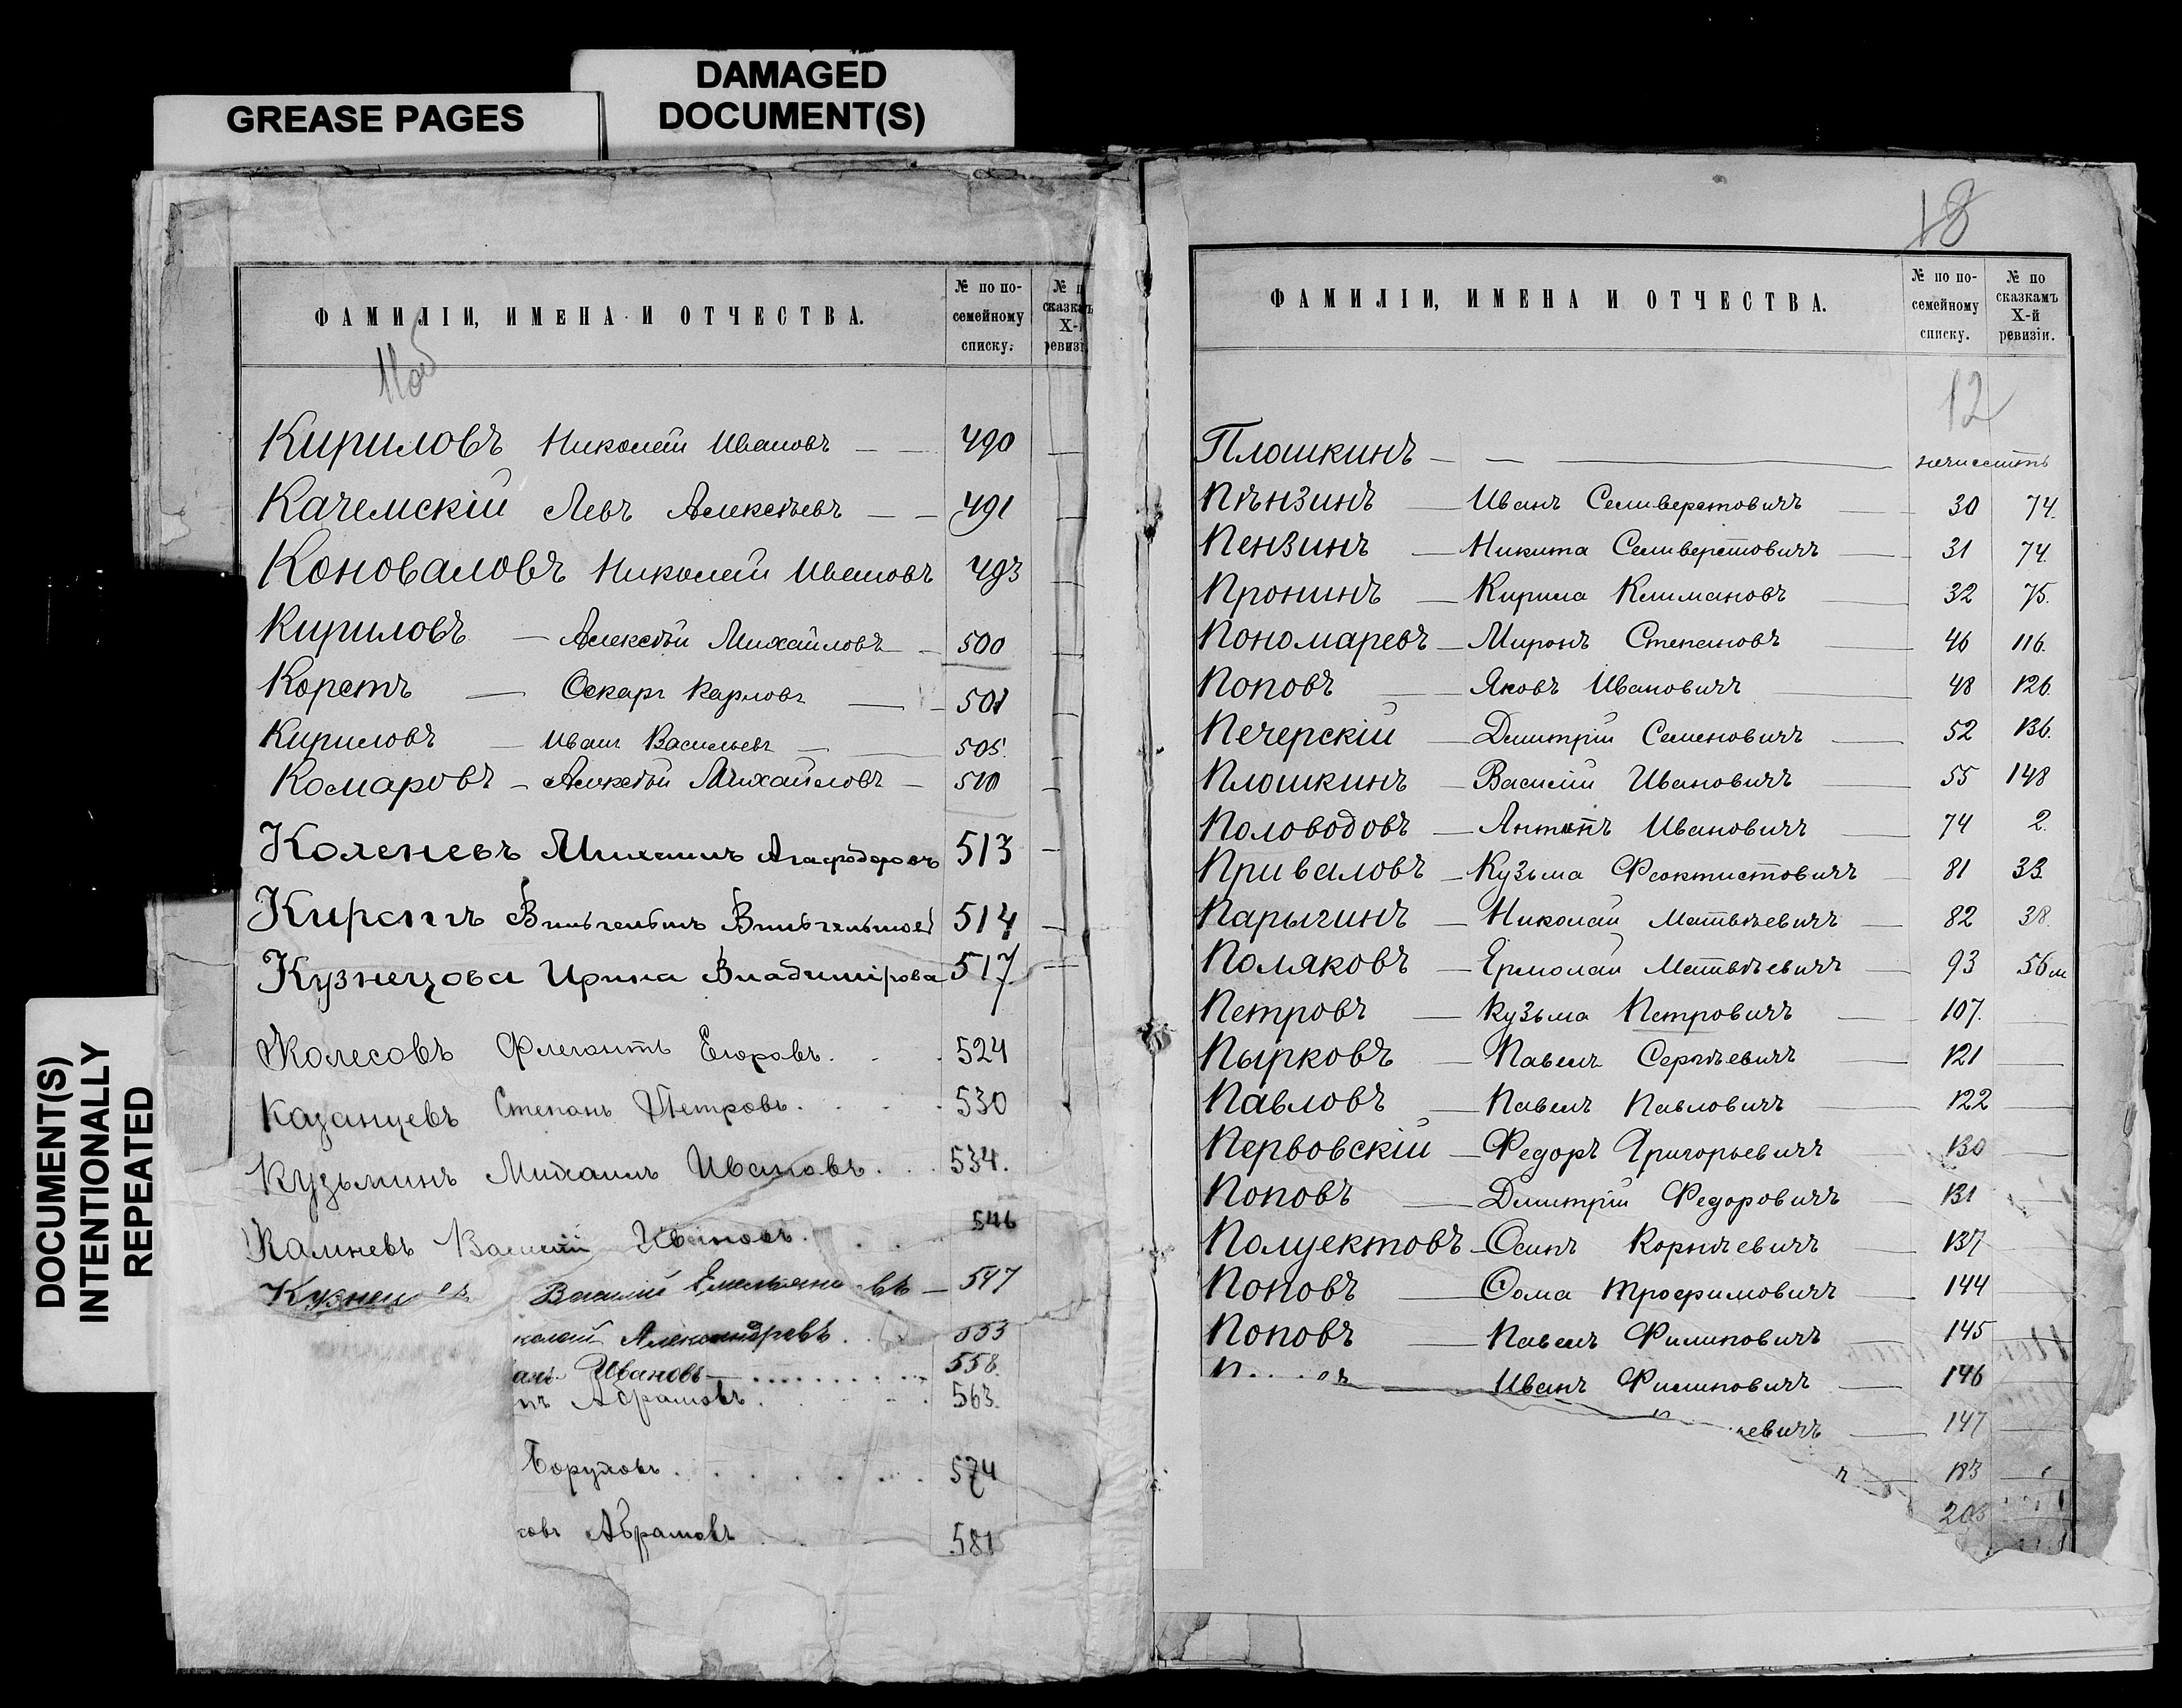 DAMAGED
DOCUMENT(S)
GREASE PAGES
DOCUMENT(S)
INTENTIONALLY
REPEATED
ФАМИЛІИ, ИМЕНА И ОТЧЕСТВА. № по по-семейному списку. № по сказкамъ X-й ревизіи.
Кириловъ Николай Ивановъ — — 490 —
Качемскій Левъ Алексѣевъ — — 491 —
Коноваловъ Николай Ивановъ 493 —
Кириловъ — Алексѣй Михайловъ — 500 —
Корстъ — Оскаръ Карловъ — 501 —
Кириловъ — Иванъ Васильевъ — 505. —
Комаровъ — Алексѣй Михайловъ — 510 —
Коленевъ Михаилъ 513 —
Вильгельмъ 514 —
Кузнецова Ирина Владимірова 517 —
Колесовъ Флегонтъ Егоровъ. 524
Казанцевъ Степанъ Петровъ. 530
Кузьминъ Михаилъ Ивановъ. 534.
Василій Ивановъ. 546
Василій 547
колай Александровъ. 553
Ивановъ 558.
Абрамовъ. 563.
Боруховъ. 574
Абрамовъ 581
18
ФАМИЛІИ, ИМЕНА И ОТЧЕСТВА. № по по-семейному списку. № по сказкамъ X-й ревизіи.
12
Плошкинъ — — —
Пѣнзинъ — Иванъ Селиверстовичъ — 30 74.
Пензинъ — Никита Селиверстовичъ — 31 74.
Пронинъ — Кирила Климановъ — 32 75.
Пономаревъ — Миронъ Степановъ — 46 116.
Поповъ — Яковъ Ивановичъ — 48 126.
Печерскій — Дмитрій Семеновичъ — 52 136.
Плошкинъ — Василій Ивановичъ — 55 148
Половодовъ — Антонъ Ивановичъ — 74 2.
Приваловъ — Кузьма Феоктистовичъ — 81 33.
Парыгинъ — Николай Матвѣевичъ — 82 38.
Поляковъ — Ермолай Матвѣевичъ — 93 56
Петровъ — Кузьма Петровичъ — 107. —
Пырковъ — Павелъ Сергѣевичъ — 121 —
Павловъ — Павелъ Павловичъ — 122 —
Первовскій — Федоръ Григорьевичъ — 130 —
Поповъ — Дмитрій Федоровичъ — 131
Полуектовъ — Осипъ Корнѣевичъ — 137
Поповъ — Ѳома Трофимовичъ — 144
Поповъ — Павелъ Филиповичъ — 145 —
Иванъ Филиповичъ — 146 —
евичъ — 147 —
ъ — 183 —
203